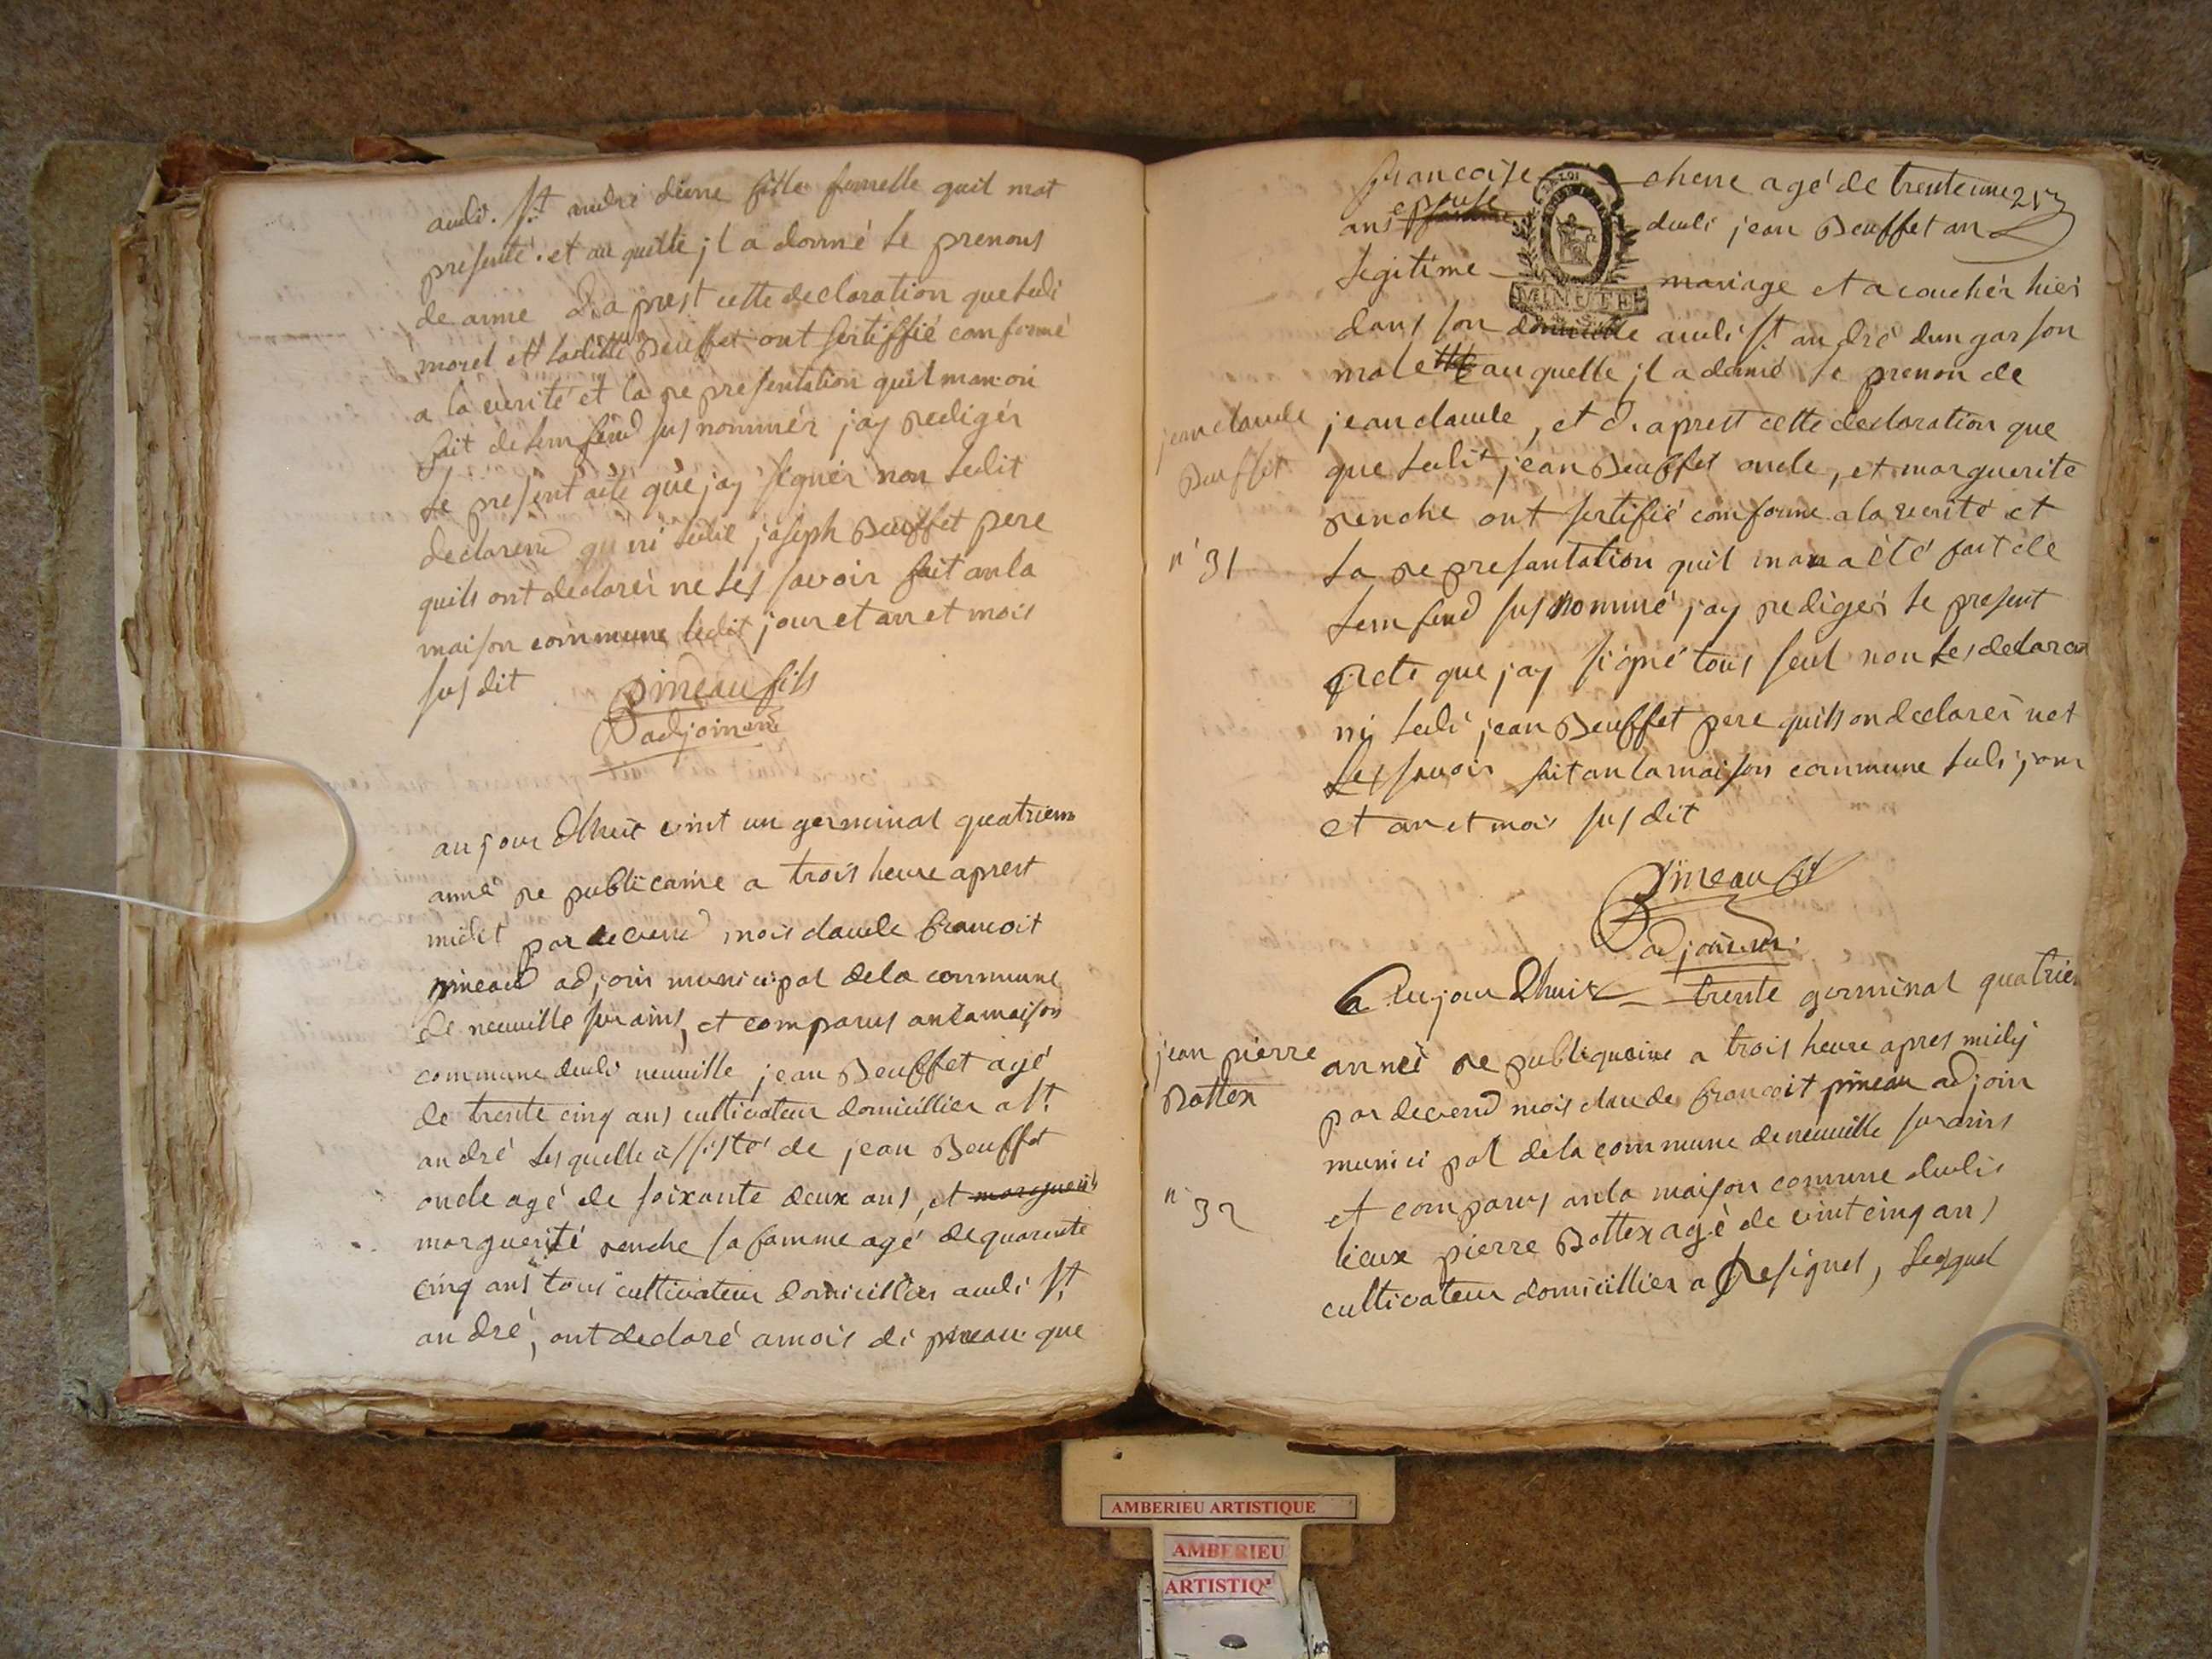 audi. St andré dune fille fumelle quil mat
presenté. et au quelle jl a donné le prenons
de anne d. a prest cette declaration que ledi
morel et laditte Beuffet ont sertiffié conforme
a la verité et la re presentation quil man on
fait de lem fend sus nommér j'ay redigér
le present acte que jay signér non ledit
declarend gu ni ledit joseph Beuffet pere
quils ont declarér ne les savoir fait an la
maison commune ledit jour et an et mois
sus dit
pineau fils
adjoin
au jour dhuit vint un germinal quatriem
anné re publicaine a trois heure aprest
midit par devend mois claude francoit
pineaud adjoin municipal de la commune
de neuville sur ains, et comparus an la maison
commune dudi neuville jean Beuffet agé
de trente cinq ans cultivateur domicillier a St.
andré lesquelle assisté de jean Beuffet
oncle agé de soixante deux ans, et marguerit
marguerité renche sa famme agé de quarente
cinq ans tous cultivateur domicillier audi St
andré, ont declaré a mois di pineau que
francoise chene agé de trente une 253
ans epouse dudi jean Beuffet an
legitime mariage et a couchér hier
MINUTE
dans son domicille audi St andré dun garson
male au quelle jl a donné le prenon de
jean claude
Beuffet
jean claude, et d. aprest cette declaration que
que ledit jean Beuffet oncle, et marguerite
renche ont sertifié comforme a la verité et
n° 31
la re presantation quil man a été fait de
lem fend sus nommé j'ay redigér le present
acte que jay signé tous seul non les declaran
ni ledi jean Beuffet pere quils on declarér net
les savoir fait an la maison commune ledi jour
et an et mois sus dit
Pineau fils
adjoin
Aujour dhuit trente germinal quatrien
jean pierre
Bottex
anneé re publiquaine a trois heure apres midy
par devend mois claude francoit pineau adjoin
munici pal de la commune de neuville sur ains
n° 32
et comparus an la maison comune dudis
lieux pierre Bottex agé de vint cinq ans
cultivateur domicillier a Resignel, lesquel
AMBERIEU ARTISTIQUE
AMBERIEU
ARTISTIQ